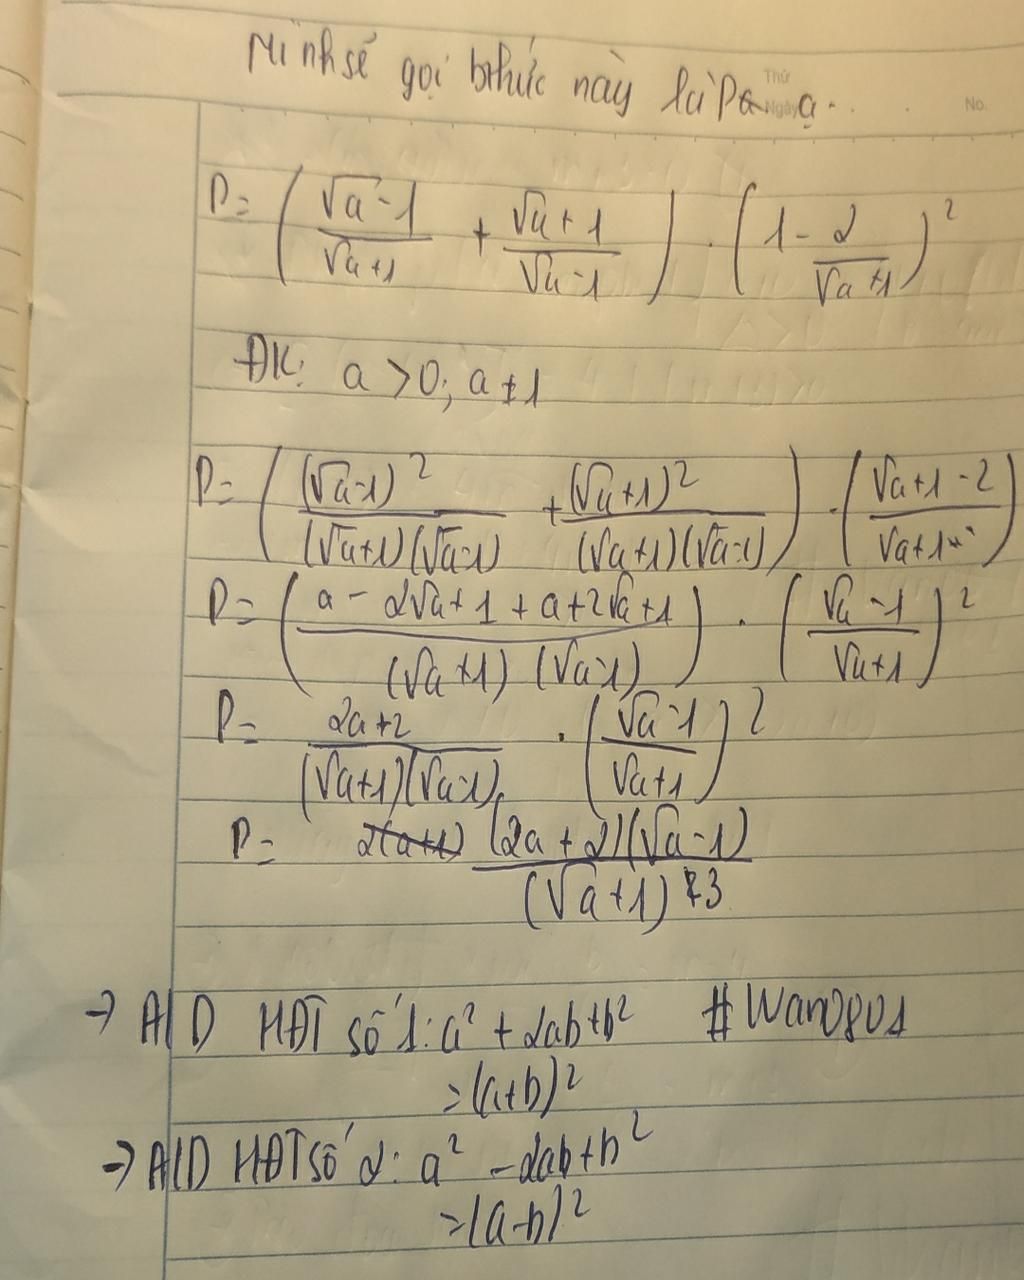 Mình sẽ gọi bthức này là P ạ...
Thứ
Ngày
No.
P = ( (√a - 1)/(√a + 1) + (√a + 1)/(√a - 1) ) . ( 1 - 2/(√a + 1) )²
ĐK: a > 0; a ≠ 1
P = ( (√a - 1)²/((√a + 1)(√a - 1)) + (√a + 1)²/((√a + 1)(√a - 1)) ) . ( (√a + 1 - 2)/(√a + 1) )
P = ( (a - 2√a + 1 + a + 2√a + 1)/((√a + 1)(√a - 1)) ) . ( (√a - 1)/(√a + 1) )²
P = (2a + 2)/((√a + 1)(√a - 1)) . ( (√a - 1)/(√a + 1) )²
P = (2a + 2)(√a - 1)/(√a + 1)³
→ A/D HĐT số 1: a² + 2ab + b² #Wan0801
= (a+b)²
→ A/D HĐT số 2: a² - 2ab + b²
= (a-b)²